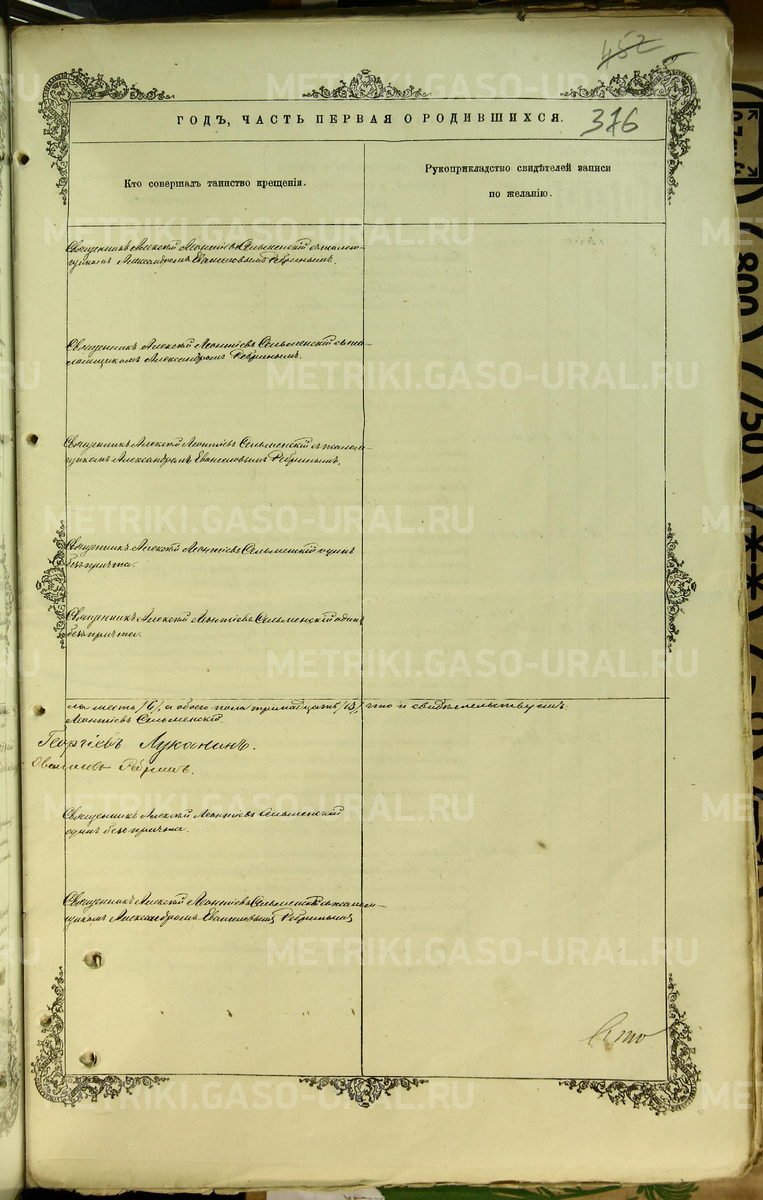 452
376
ГОДЪ, ЧАСТЬ ПЕРВАЯ О РОДИВШИХСЯ.
Кто совершалъ таинство крещенія.
Рукоприкладство свидѣтелей записи
по желанію.
Священникъ Алексій Леонтіевъ Сельменскій съ псалом-
щикомъ Александромъ Евангеловымъ Ребринымъ.
Священникъ Алексій Леонтіевъ Сельменскій съ пса-
ломщикомъ Александромъ Ребринымъ.
Священникъ Алексій Леонтіевъ Сельменскій съ псалом-
щикомъ Александромъ Евангеловымъ Ребринымъ.
Священникъ Алексій Леонтіевъ Сельменскій одинъ
безъ причта.
Священникъ Алексій Леонтіевъ Сельменскій одинъ
безъ причта.
ла шесть /6/, а обоего пола тринадцать /13/, что и свидѣтельствуемъ:
Леонтіевъ Сельменскій.
Георгіевъ Луканинъ.
Ребринъ.
Священникъ Алексій Леонтіевъ Сельменскій
одинъ безъ причта.
Священникъ Алексій Леонтіевъ Сельменскій съ псалом-
щикомъ Александромъ Евангеловымъ Ребринымъ
METRIKI.GASO-URAL.RU